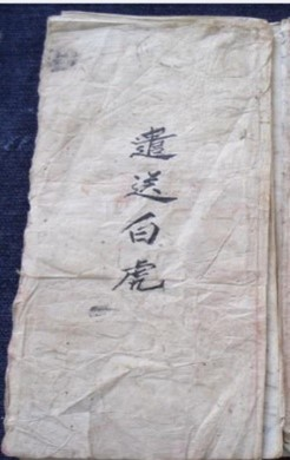 遣送白虎